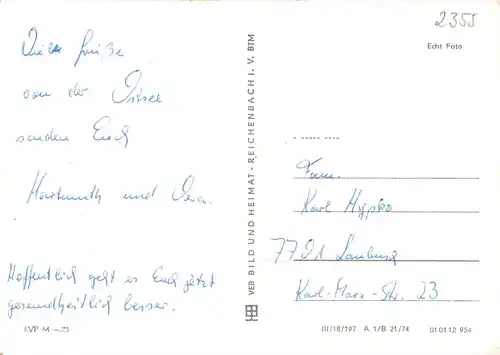 2355
Echt Foto
Viele Grüße
von der Ostsee
senden Euch
Hartmuth und Vera.
Hoffentlich geht es Euch jetzt
gesundheitlich besser.
EVP M -.25
VEB BILD UND HEIMAT · REICHENBACH I. V. BTM
Fam.
Karl
7701
Karl-Marx-Str. 23
III/18/197 A 1/B 21/74 01 01 12 954